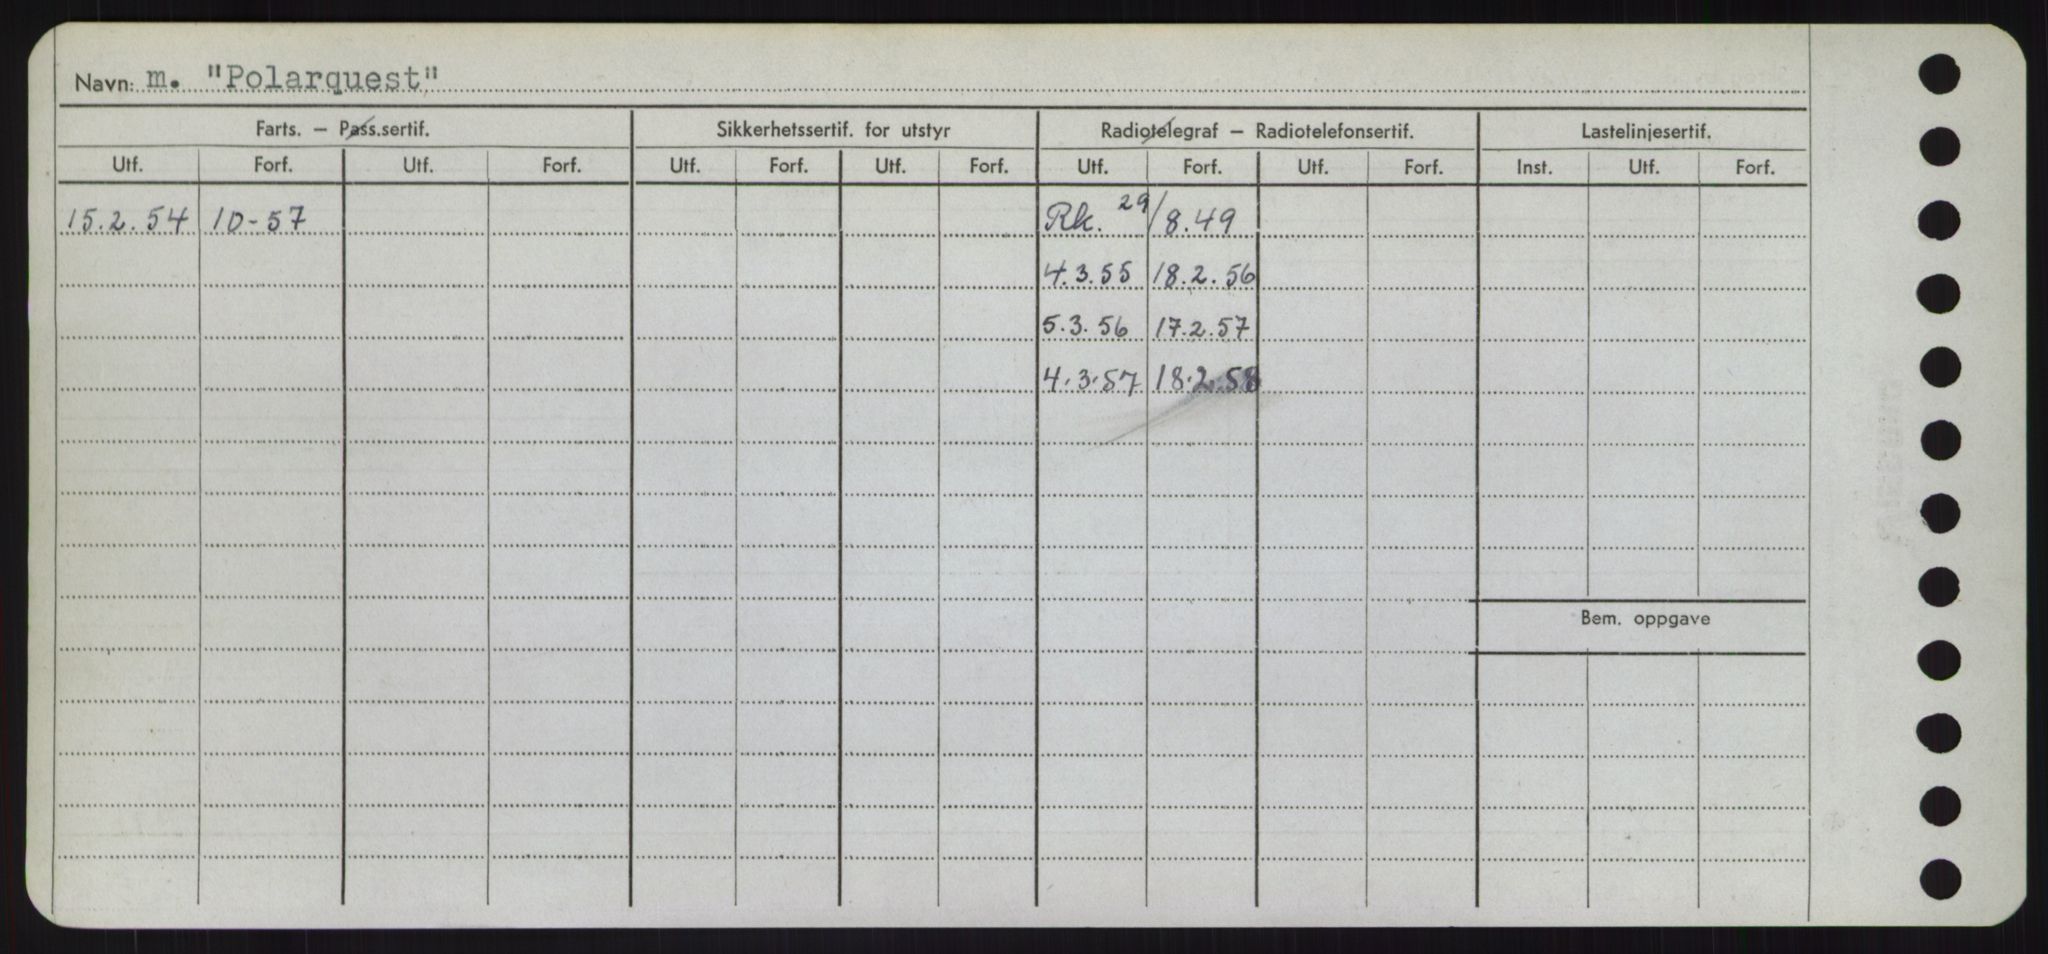 Navn: m. "Polarquest"
Farts. – Pass.sertif. Sikkerhetssertif. for utstyr Radiotelegraf – Radiotelefonsertif. Lastelinjesertif.
Utf. Forf. Utf. Forf. Utf. Forf. Utf. Forf. Utf. Forf. Utf. Forf. Inst. Utf. Forf.
15.2.54 10-57 Rk. 29/8.49
4.3.55 18.2.56
5.3.56 17.2.57
4.3.57 18.2.58
Bem. oppgave